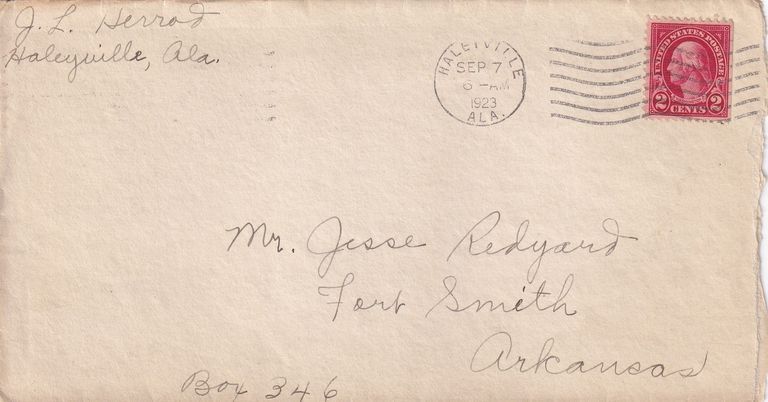 J. L. Herrod
Haleyville, Ala.
HALEYVILLE
SEP 7
6 –AM
1923
ALA.
UNITED STATES POSTAGE
2 CENTS 2
Mr. Jesse Redyard
Fort Smith
Arkansas
Box 346